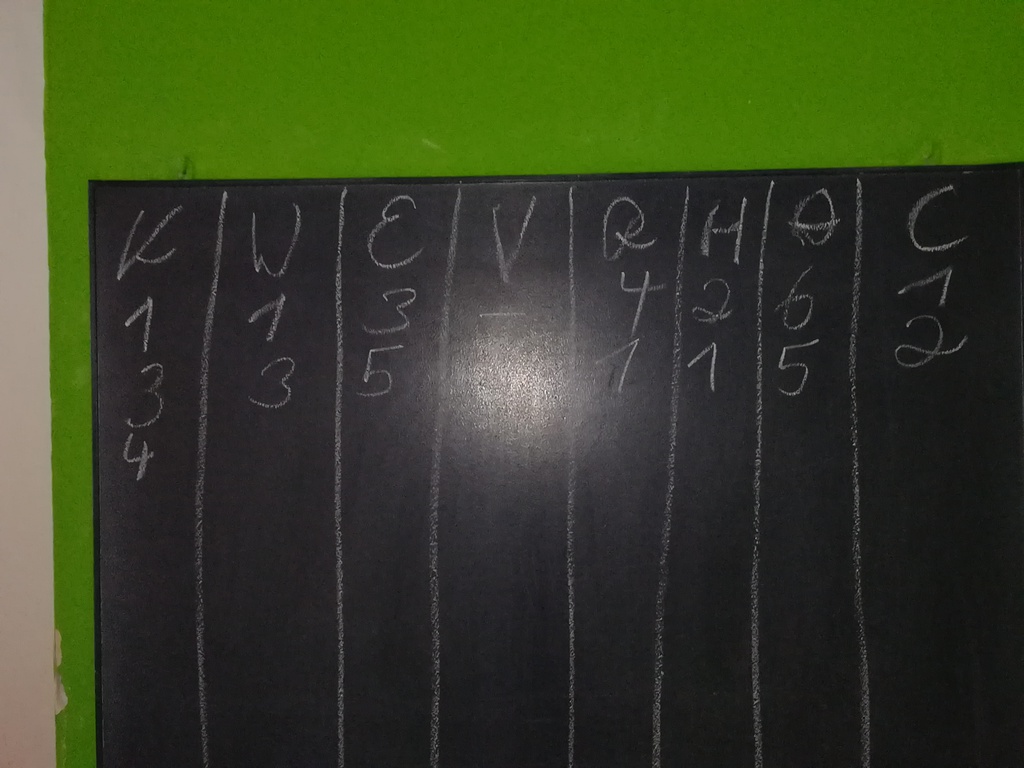 K W E V R H O C
1 1 3 - 4 2 6 1
3 3 5 1 1 5 2
4